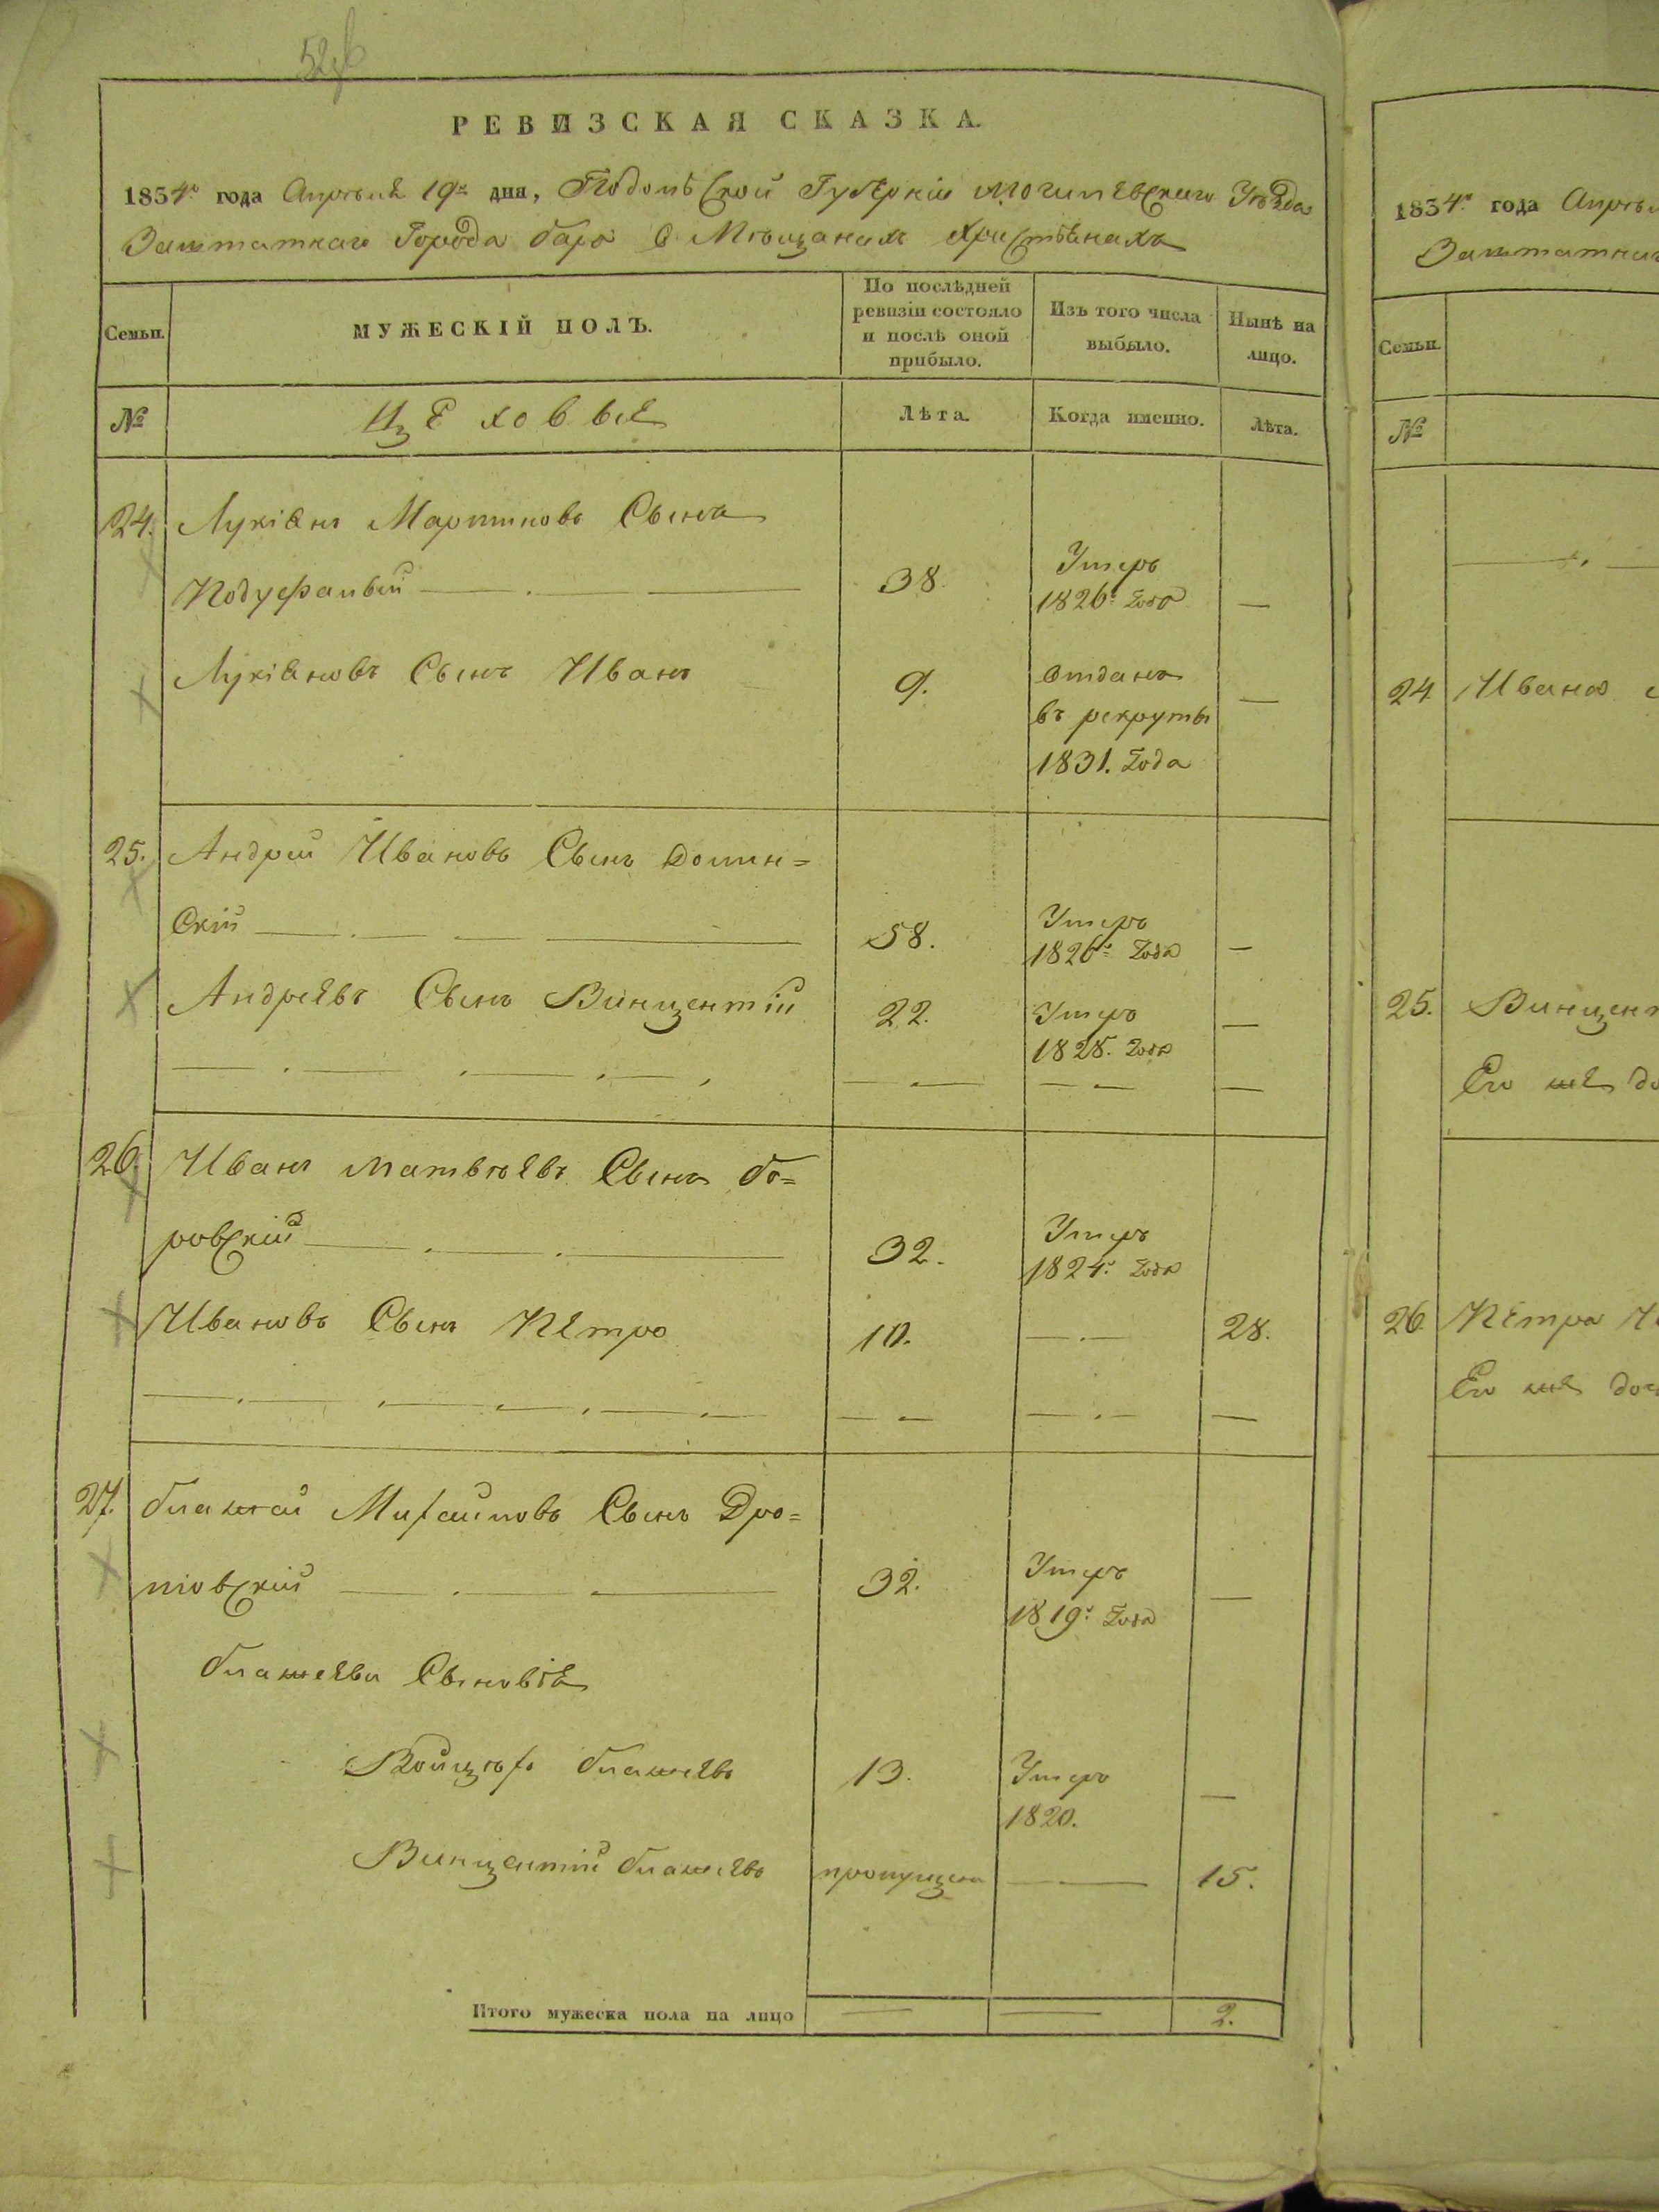 РЕВИЗСКАЯ СКАЗКА.
1834го года Апрѣля 19го дня, Подольской Губерніи Могилевскаго Уѣзда
Заштатнаго Города Бара о Мѣщанахъ Христіанахъ
Семьи.
МУЖЕСКІЙ ПОЛЪ.
По послѣдней
ревизіи состояло
и послѣ оной
прибыло.
Изъ того числа
выбыло.
Нынѣ на
лицо.
№
Цеховые
Лѣта.
Когда именно.
Лѣта.
24. Лукіянъ Мартиновъ Сынъ
38. Умеръ
1826го года —
Лукіяновъ Сынъ Иванъ 9. отданъ
въ рекруты —
1831. года
25. Андрей Ивановъ Сынъ Домин=
скій 58. Умеръ
1826го года —
Андреевъ Сынъ Винцентій 22. Умеръ —
1828. года
26. Иванъ Матвѣевъ Сынъ Бо=
ровскій 32. Умеръ
1824го года
Ивановъ Сынъ Петро 10. — 28.
27. Блажей Михайловъ Сынъ Дро=
піовскій 32. Умеръ
1819го года —
Блажеевы Сыновья
Войцѣхъ Блажеевъ 13. Умеръ —
1820.
Винцентій Блажеевъ пропущенъ — 15.
Итого мужеска пола на лицо — — 2.
1834го года Апрѣл
Заштатнаг
Семьи.
№
24 Ивана
25. Винцент
Его же до
26. Петра
Его же доч